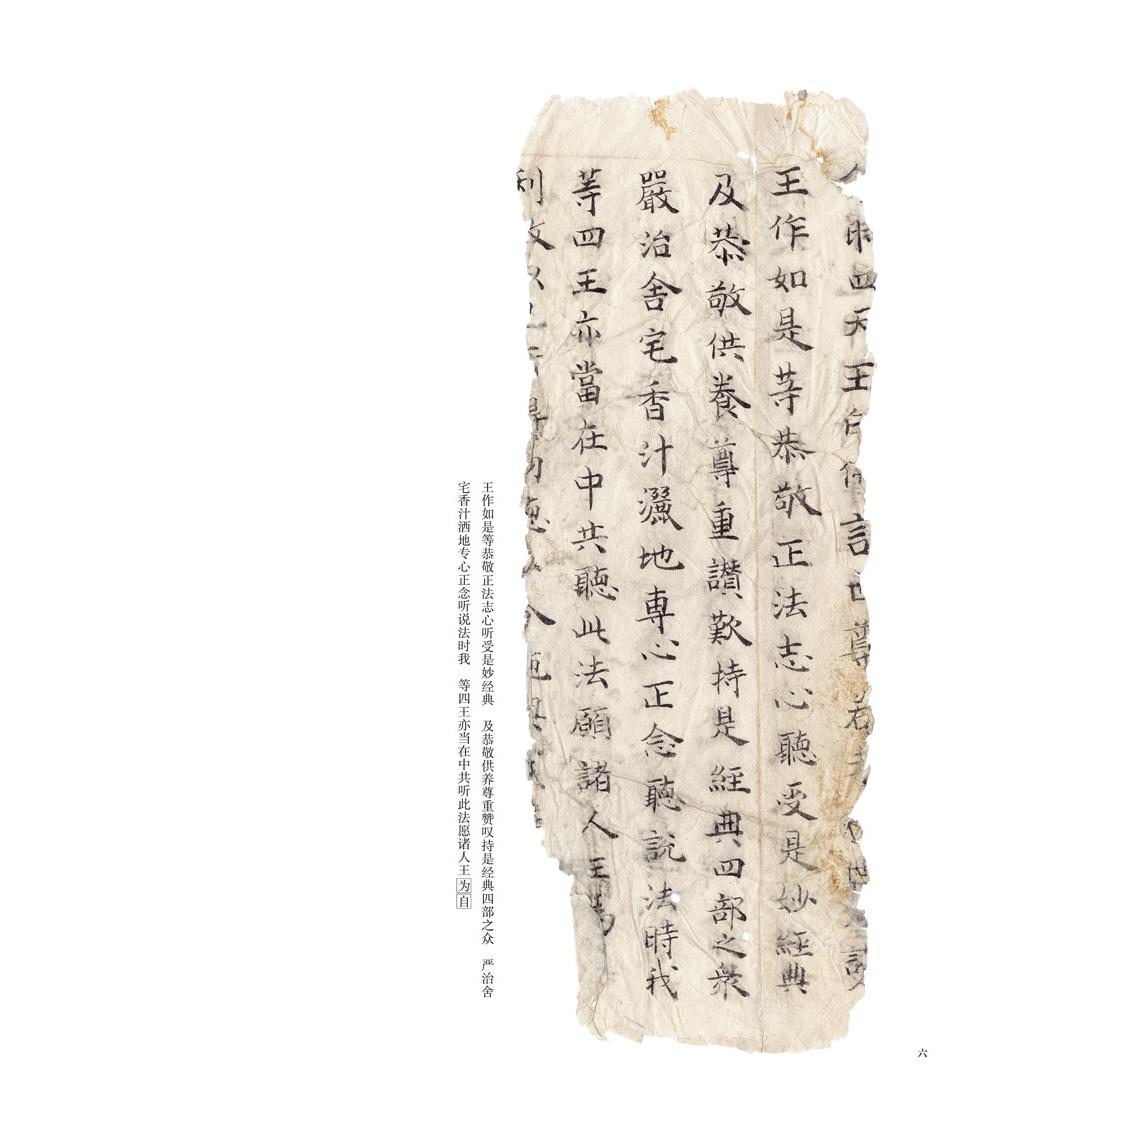 時四天王白佛言世尊若
王作如是等恭敬正法志心聽受是妙經典
及恭敬供養尊重讚歎持是經典四部之衆
嚴治舍宅香汁灑地專心正念聽說法時我
等四王亦當在中共聽此法願諸人王為
利故以
王作如是等恭敬正法志心听受是妙经典　及恭敬供养尊重赞叹持是经典四部之众　严治舍
宅香汁洒地专心正念听说法时我　等四王亦当在中共听此法愿诸人王为自
六